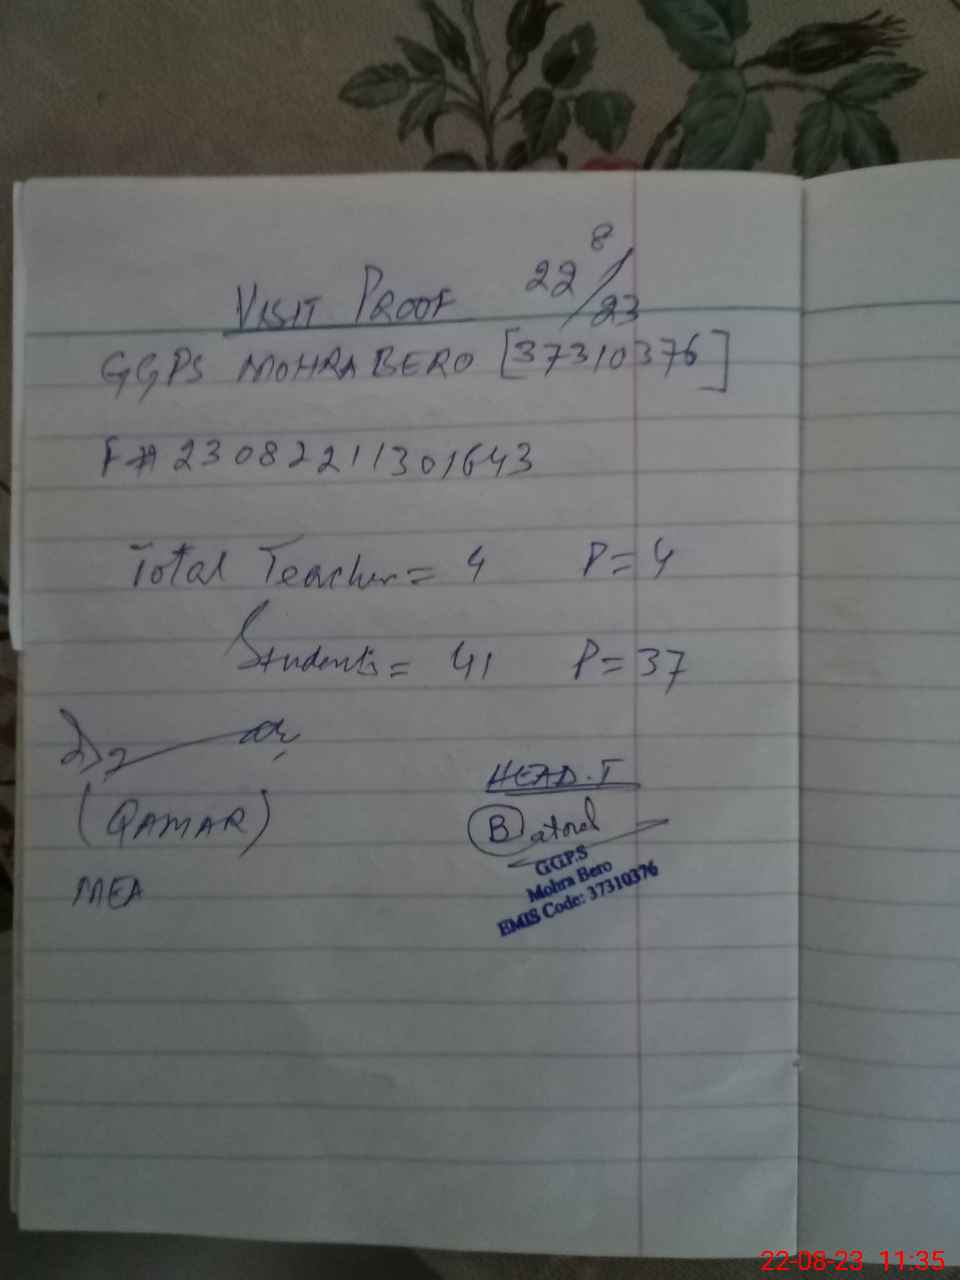 VISIT PROOF 22/8/23
GGPS MOHRA BERO [37310376]
F# 23082211301643
Total Teacher = 4 P = 4
Students = 41 P = 37
(QAMAR)
MEA
HEAD.T
Batool
GGP.S
Mohra Bero
EMIS Code: 37310376
22-08-23 11:35